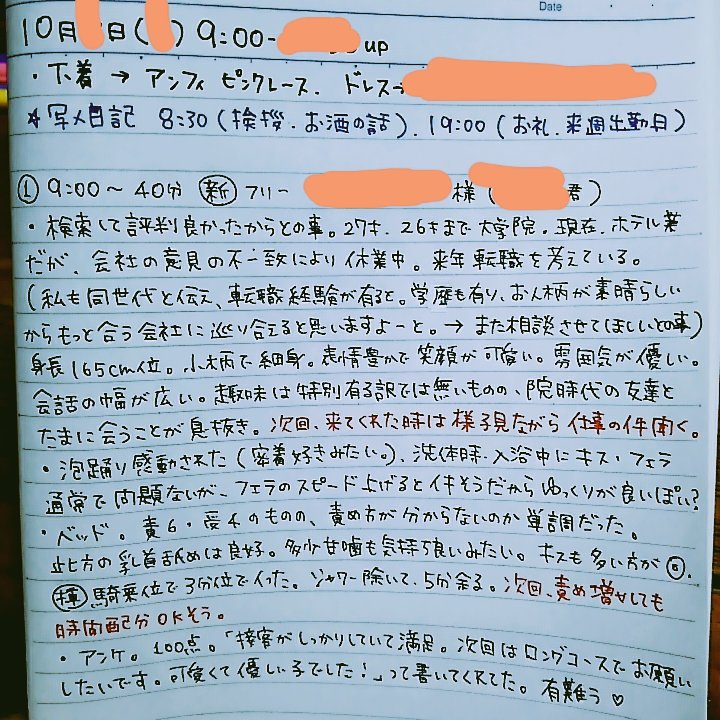 Date
10月 日( ) 9:00- up
・下着 → アンフィ ピンクレース. ドレス→
*写メ日記 8:30 (挨拶.お酒の話). 19:00 (お礼.来週出勤日)
① 9:00～40分 新 フリー 様 ( 君)
・検索して評判良かったからとの事。27才. 26才まで大学院. 現在. ホテル業
だが、会社の意見の不一致により休業中。来年転職を考えている。
(私も同世代と伝え、転職経験が有ると。学歴も有り、お人柄が素晴らしい
からもっと合う会社に巡り合えると思いますよーと。→また相談させてほしいとの事)
身長165cm位。小柄で細身。表情豊かで笑顔が可愛い。雰囲気が優しい。
会話の幅が広い。趣味は特別有る訳では無いものの、院時代の友達と
たまに会うことが息抜き。次回、来てくれた時は様子見ながら仕事の件聞く。
・泡踊り感動された(密着好きみたい。)、洗体時・入浴中にキス・フェラ
通常で問題ないが、フェラのスピード上げるとイキそうだからゆっくりが良いぽい?
・ベッド。責6・受4のものの、責め方が分からないのか単調だった。
此方の乳首舐めは良好。多少甘噛も気持ち良いみたい。キスも多い方が◎.
騎乗位で3分位でイった。シャワー除いて、5分余る。次回、責め増やしても
時間配分OKそう。
・アンケ。100点。「接客がしっかりしていて満足。次回はロングコースでお願い
したいです。可愛くて優しい子でした!」って書いてくれてた。有難う♡